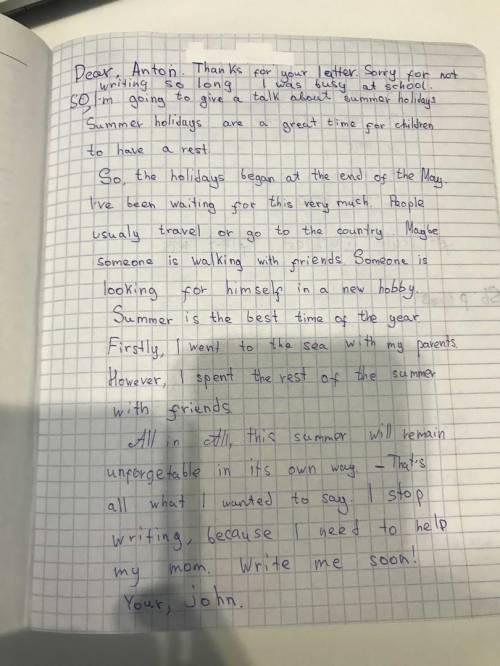 Dear, Anton. Thanks for your letter. Sorry for not
writing so long. I was busy at school.
So, I'm going to give a talk about summer holidays
Summer holidays are a great time for children
to have a rest
So, the holidays began at the end of the May.
I've been waiting for this very much. People
usualy travel or go to the country. Maybe
someone is walking with friends. Someone is
looking for himself in a new hobby.
Summer is the best time of the year
Firstly, I went to the sea with my parents.
However, I spent the rest of the summer
with friends
All in All, this summer will remain
unforgetable in its own way. - That's
all what I wanted to say. I stop
writing, because I need to help
my mom. Write me soon!
Your, john.